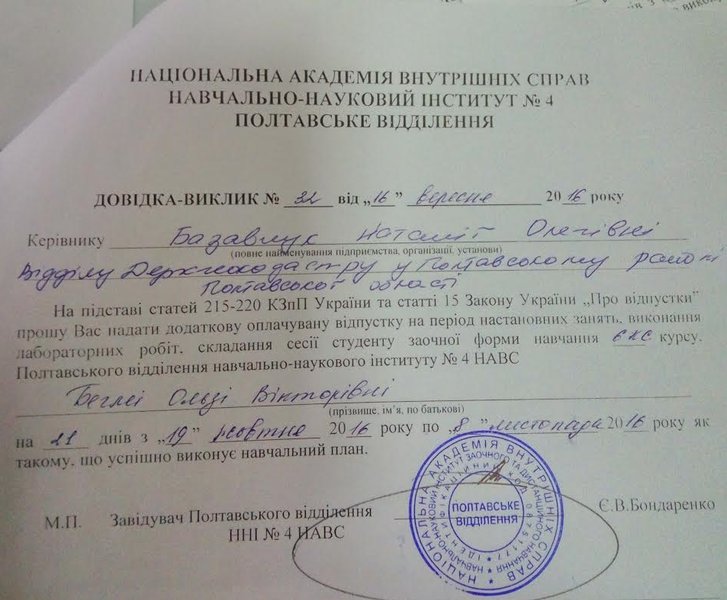 НАЦІОНАЛЬНА АКАДЕМІЯ ВНУТРІШНІХ СПРАВ
НАВЧАЛЬНО-НАУКОВИЙ ІНСТИТУТ № 4
ПОЛТАВСЬКЕ ВІДДІЛЕННЯ
ДОВІДКА-ВИКЛИК № 32 від „16” вересня 2016 року
Керівнику Базавлук Наталії Олегівні
(повне найменування підприємства, організації, установи)
Відділу Держгеокадастру у Полтавському районі
Полтавської області
На підставі статей 215-220 КЗпП України та статті 15 Закону України „Про відпустки”
прошу Вас надати додаткову оплачувану відпустку на період настановних занять, виконання
лабораторних робіт, складання сесії студенту заочної форми навчання курсу,
Полтавського відділення навчально-наукового інституту № 4 НАВС
Беглєй Ользі Вікторівні
(прізвище, ім’я, по батькові)
на 21 днів з „19” жовтня 2016 року по „8” листопада 2016 року як
такому, що успішно виконує навчальний план.
М.П. Завідувач Полтавського відділення Є.В.Бондаренко
ННІ № 4 НАВС
НАЦІОНАЛЬНА АКАДЕМІЯ ВНУТРІШНІХ СПРАВ
НАВЧАЛЬНО-НАУКОВИЙ ІНСТИТУТ ЗАОЧНОГО ТА ДИСТАНЦІЙНОГО НАВЧАННЯ
ІДЕНТИФІКАЦІЙНИЙ КОД 08751177
ПОЛТАВСЬКЕ
ВІДДІЛЕННЯ